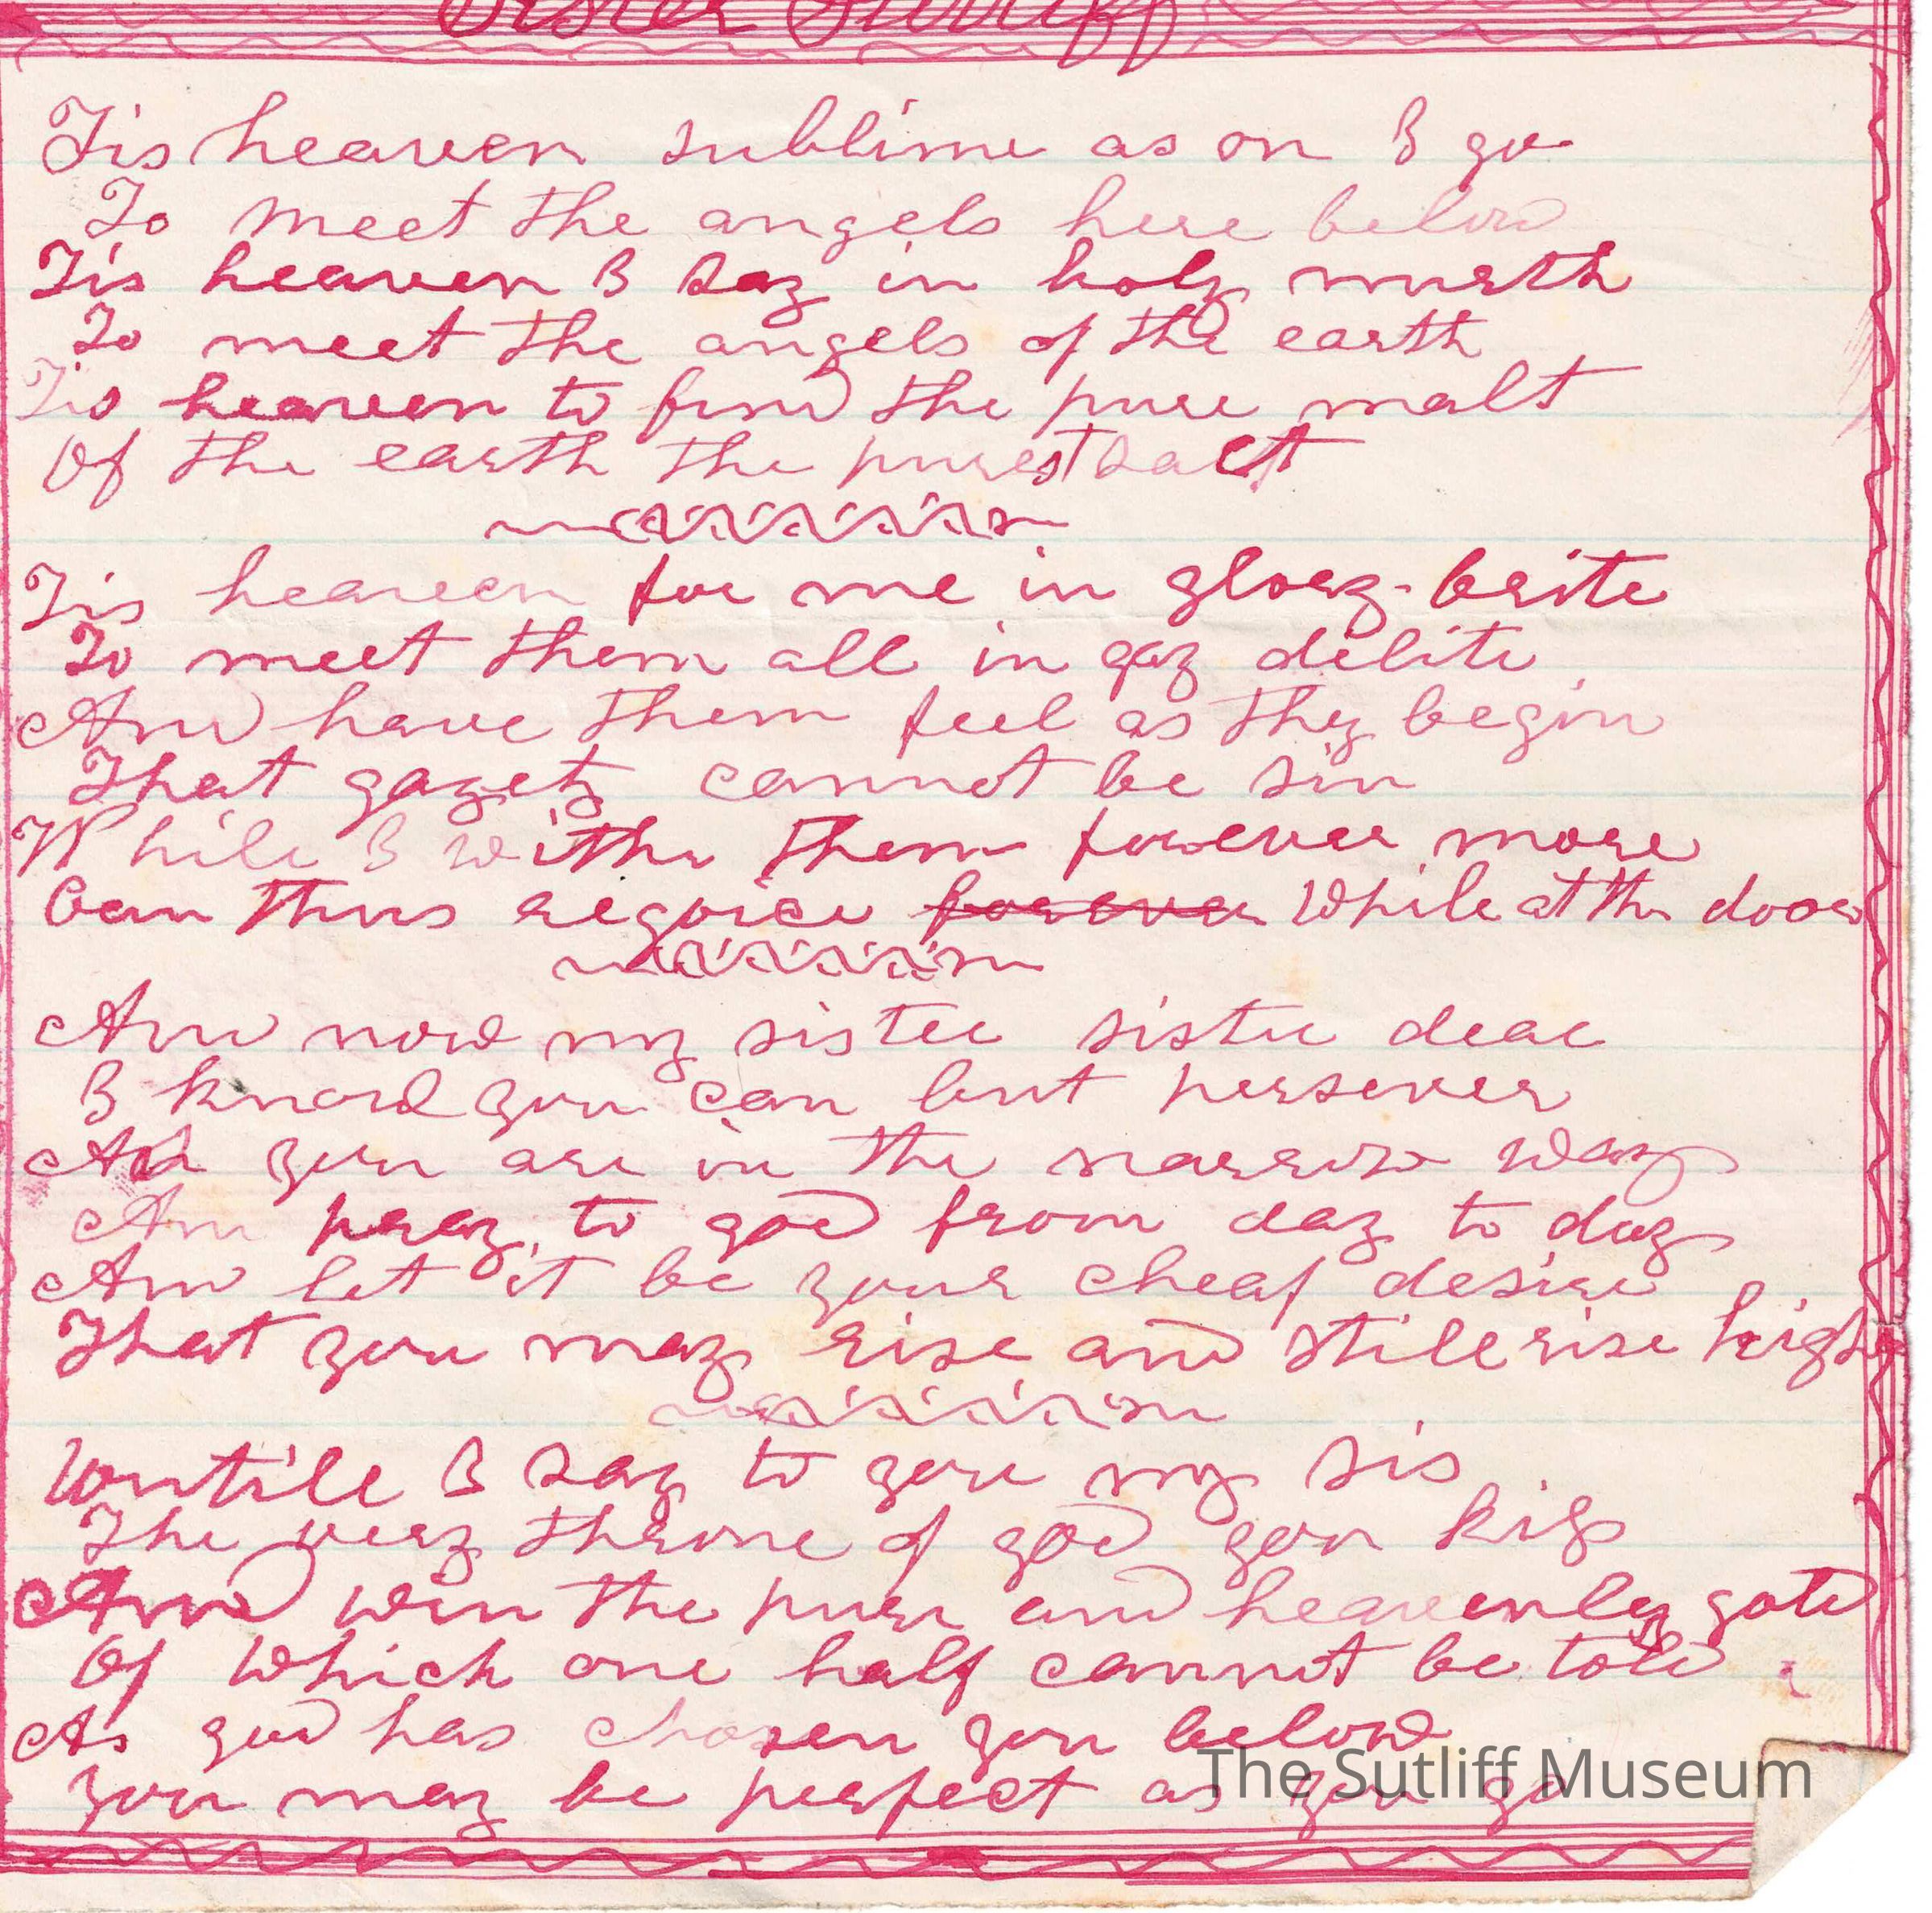 Sister Surriff
Tis heaven sublime as on I go
To meet the angels here below
Tis heaven I say in holy murth
To meet the angels of the earth
Tis heaven to find the pure malt
Of the earth the purest salt
Tis heaven for me in glory-brite
To meet them all in gay delite
And have them feel as they begin
That gayety cannot be sin
While I with them forever more
Can thus rejoice forever While at the door
And now my sister sister dear
I know you can but persever
As you are in the narrow way
An pray to god from day to day
And let it be your cheaf desire
That you may rise and still rise higher
Wontill I say to you my sis
The very throne of god you kiss
And win the pure and heavenly gate
Of which one half cannot be told
As god has chosen you below
You may be perfect as you go
The Sutliff Museum